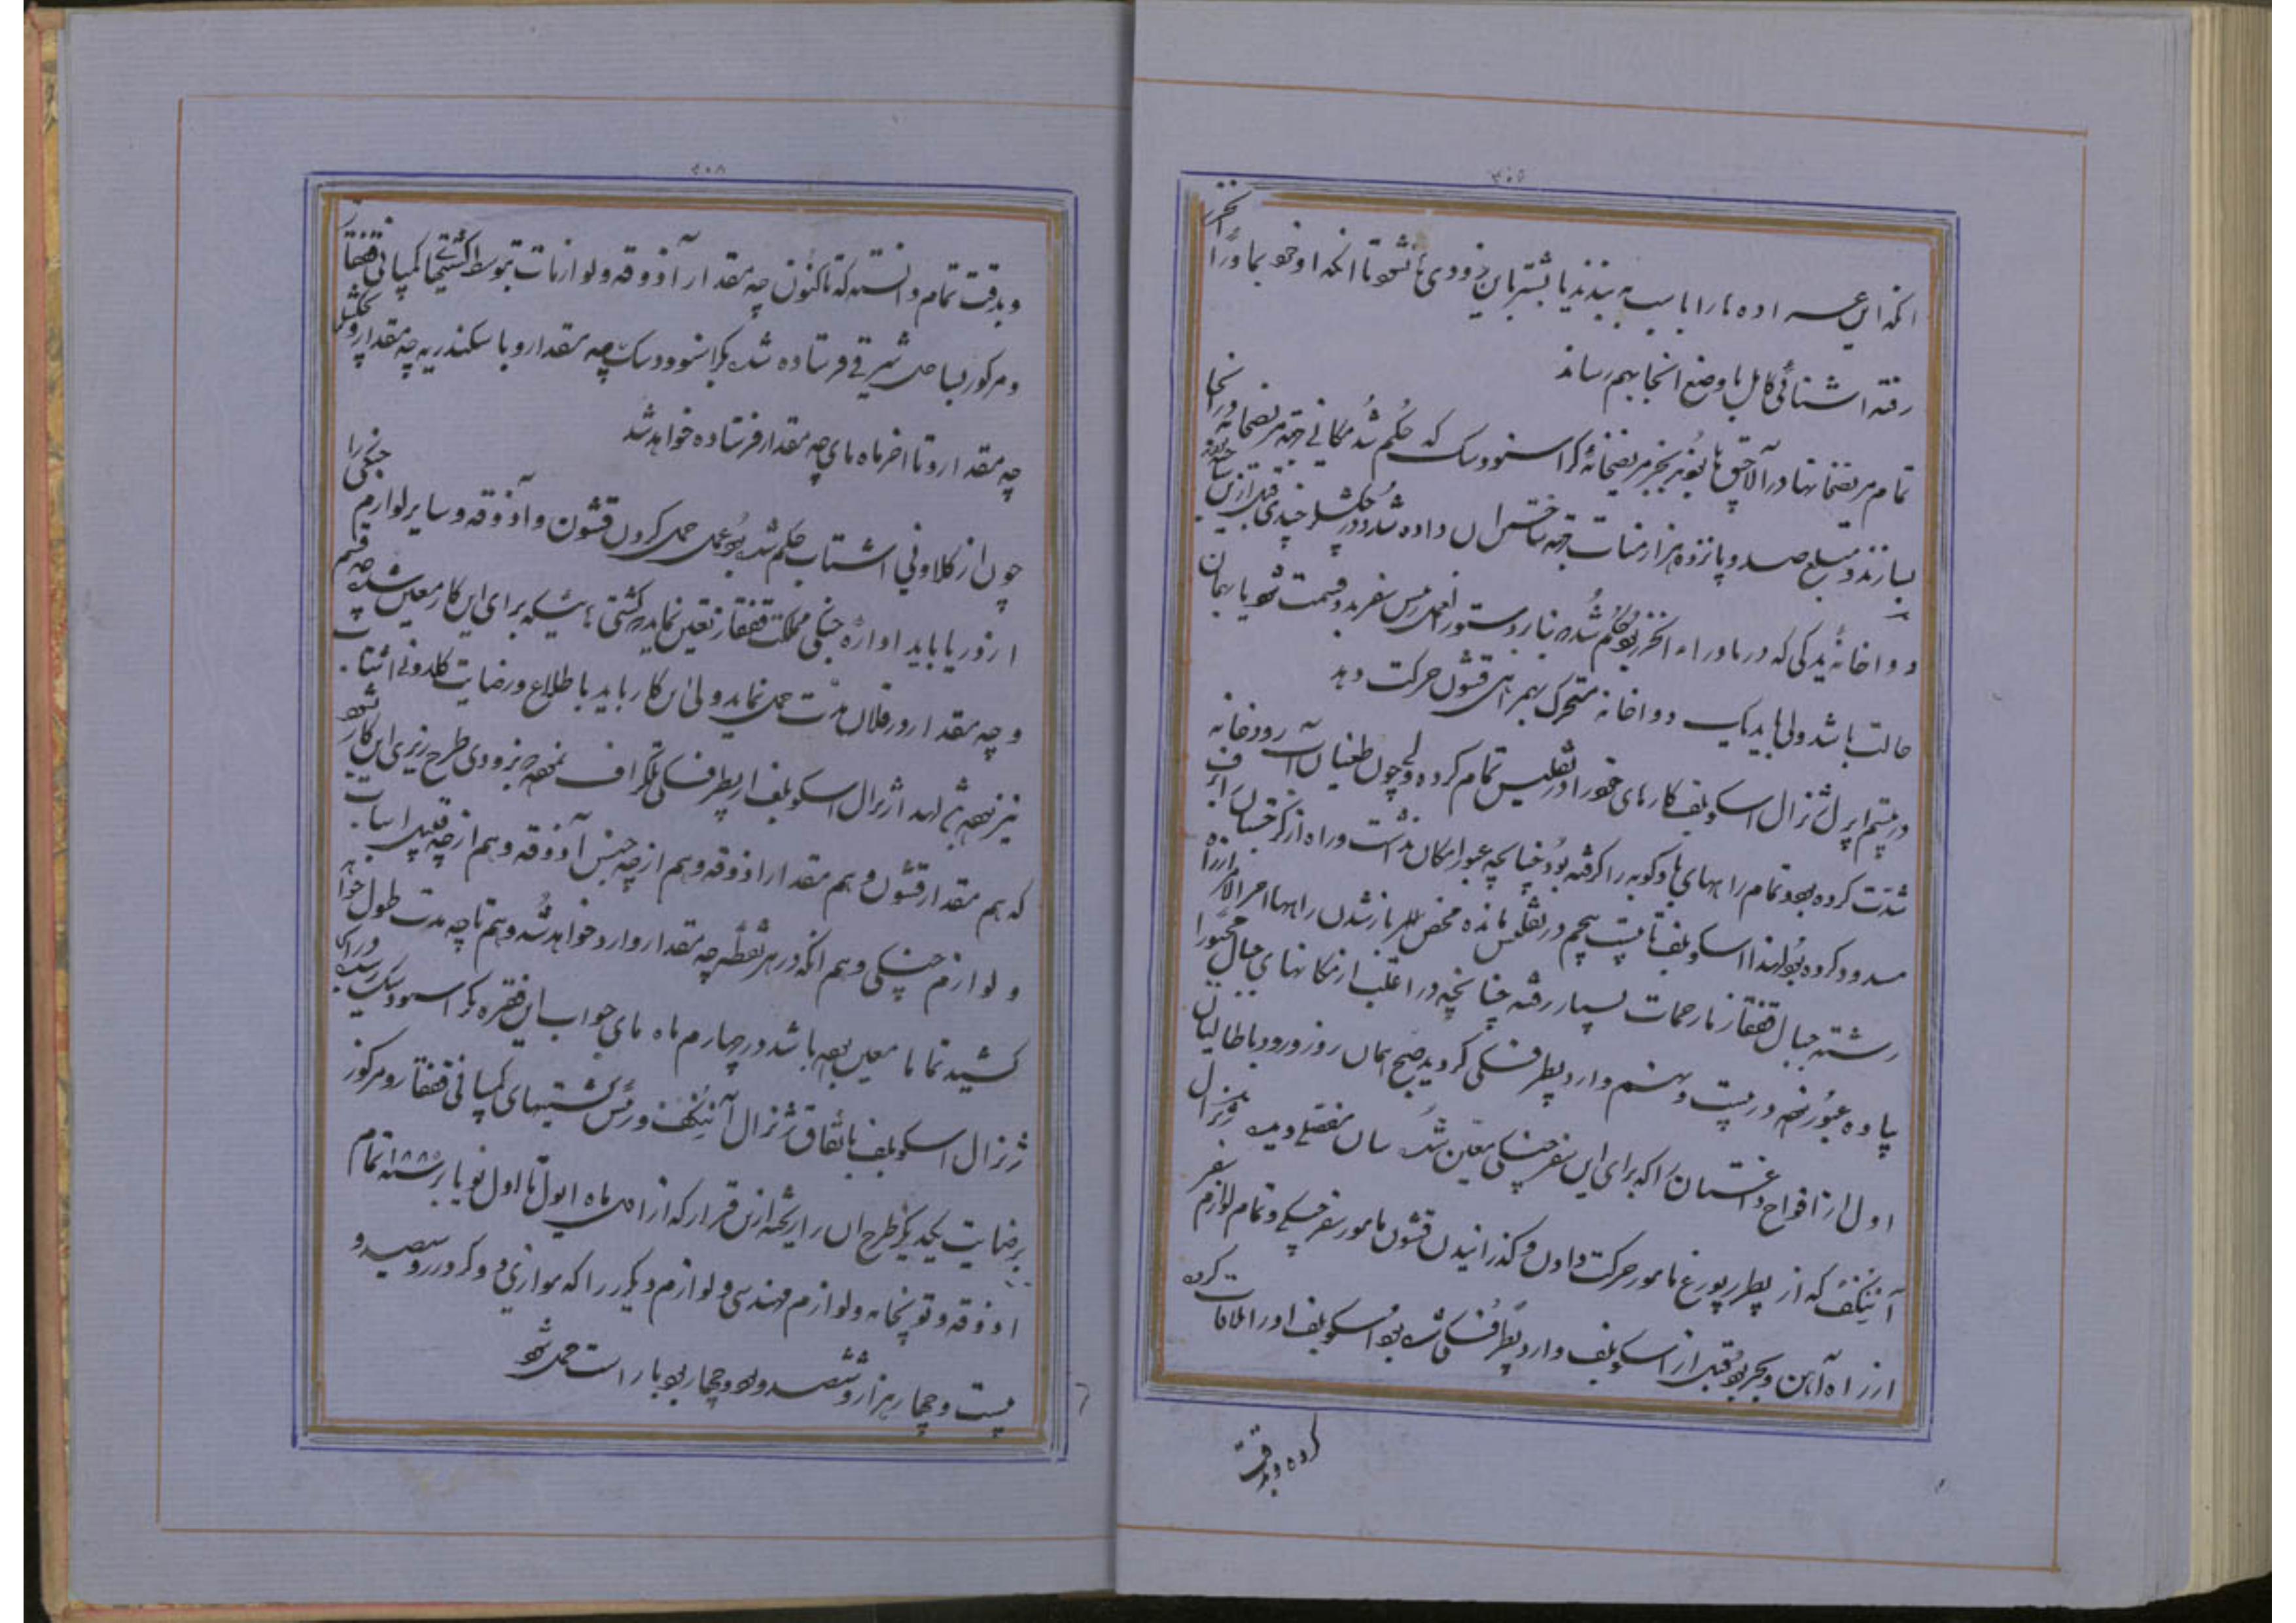 انکه این عراده ها را با اسب به بندند یا بشتر باین زودی ها نشود تا انکه او خود بماوراء الخزر
رفته اشنائی کامل با وضع انجا بهم رساند
تمام مریضخانها در آلاچق ها بود بجز مریضخانهٔ کراسنوودسک که حکم شد مکانی جهة مریضخانه در انجا
بسازند و مبلغ صد و پانزده هزار منات جهة ساختن ان داده شد و در چکشلر چندی قبل ازین
دواخانهٔ یدکی که در ماوراء الخزر بود حکم شده بنا بر دستورالعمل رئیس سفر بدو قسمت شود یا بهمان
حالت باشد ولی باید یک دواخانه متحرک بهمراهی قشون حرکت دهد
در بیستم اپرل ژنرال اسکوبلف کارهای خود را در تفلیس تمام کرده ولی چون طغیان آب رودخانه
شدت کرده بود و تمام راههای باکو به را گرفته بود چنانچه عبور امکان نداشت و راه
مسدود کرده بود لهذا اسکوبلف تا بیست پنجم در تفلیس مانده محض باز شدن راهها اخر الامر از راه
رشته جبال قفقاز با زحمات بسیار رفته چنانچه در اغلب از مکانهای جبال مجبورا
پیاده عبور نموده در بیست و نهم وارد پطرفسکی کردید صبح همان روز ورود باطالیان
اول از افواج داغستان را که برای این سفر جنکی معین شده سان مفصلی دیده و ژنرال
آننکف که از پطرپورغ مامور حرکت دادن و گذرانیدن قشون مامور سفر جنکی و تمام لوازم سفر
از راه آهن و بحر بود قبل از اسکوبلف وارد پطرفسکی شده بود اسکوبلف او را ملاقات کرده
کرده و بدقت
وبدقت تمام دانسته که تاکنون چه مقدار آذوقه و لوازمات بتوسط کشتیهای کمپانی قفقاز
و مرکور بساحل شرقی فرستاده شده بکراسنوودسک چه مقدار و باسکندریه چه مقدار و بچکشلر
چه مقدار و تا اخر ماه مای چه مقدار فرستاده خواهد شد
چون از کلاونی اشتاب حکم شده بود عمل حمل کردن قشون و آذوقه و سایر لوازم جنکی را
از دریا باید اداره جنکی مملکت قفقاز تعین نماید که کشتی هائیکه برای این کار معین شده چه قسم
و چه مقدار و در فلان مدت حمل نماید ولی این کار باید باطلاع و رضایت کلاونی اشتاب
نیز بوده باشد لهذا ژنرال اسکوبلف از پطرفسکی تلگراف نموده که بزودی طرح ریزی این کار شود
که هم مقدار قشون و هم مقدار اذوقه و هم از چه جنس آذوقه و هم از چه قبیل اسباب
و لوازم جنکی و هم انکه در هر نقطه چه مقدار وارد خواهد شد و هم تا چه مدت طول خواهد
کشید تماما معین بوده باشد در چهارم ماه مای جواب این فقره بکراسنوودسک رسید
ژنرال اسکوبلف باتفاق ژنرال آننکف و رئیس کشتیهای کمپانی قفقاز و مرکور
برضایت یکدیگر طرح ان را ریخته ازین قرار که از اول ماه ایول تا اول نویابر سنه ۱۸۸۰ تمام
اذوقه و توپخانه و لوازم مهندسی و لوازم دیگر را که موازی دو کرور و سیصد و
بیست و چهار هزار و ششصد و نود و چهار پود بار است حمل شود